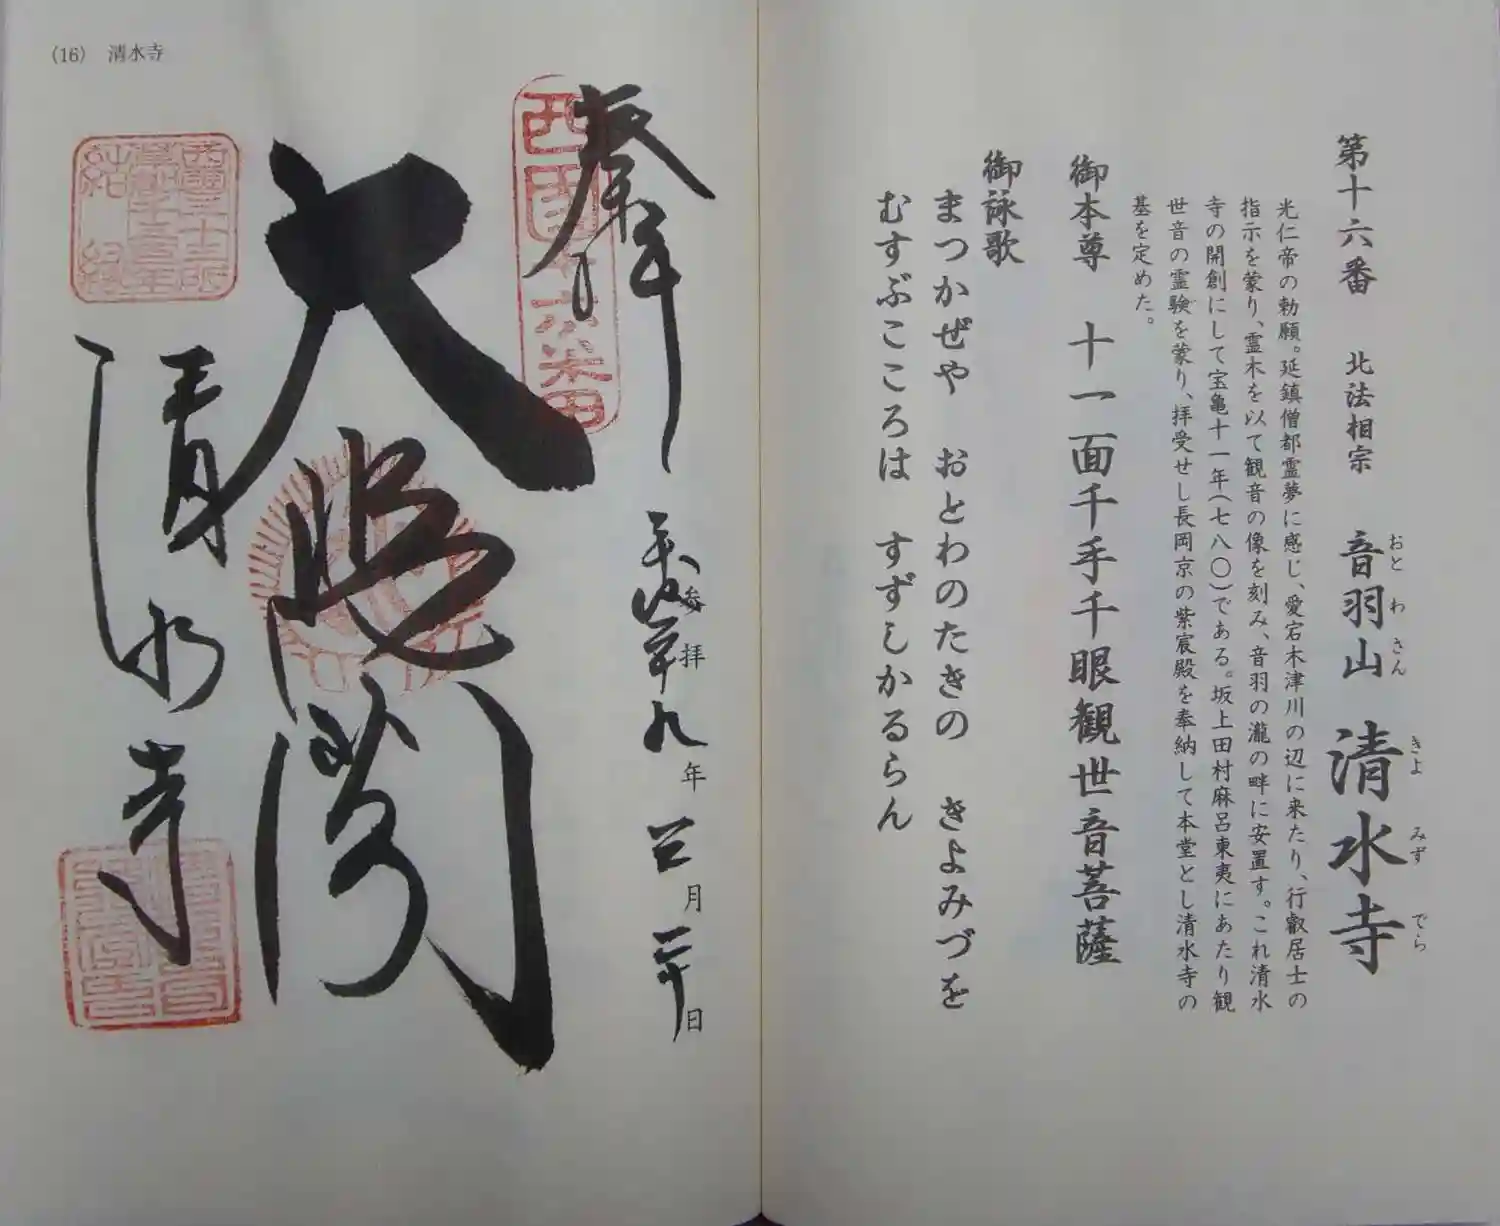 第十六番 北法相宗 音羽山 清水寺
おと わ さん きよ みず でら
光仁帝の勅願。延鎮僧都霊夢に感じ、愛宕木津川の辺に来たり、行叡居士の
指示を蒙り、霊木を以て観音の像を刻み、音羽の瀧の畔に安置す。これ清水
寺の開創にして宝亀十一年(七八〇)である。坂上田村麻呂東夷にあたり観
世音の霊験を蒙り、拝受せし長岡京の紫宸殿を奉納して本堂とし清水寺の
基を定めた。
御本尊 十一面千手千眼観世音菩薩
御詠歌
まつかぜや おとわのたきの きよみづを
むすぶこころは すずしかるらん
(16) 清水寺
奉拝
西国十六番
平成二十九年 三月 二十日
参拝
大悲閣
清水寺
西國三十三所
草創千三百年
結縁